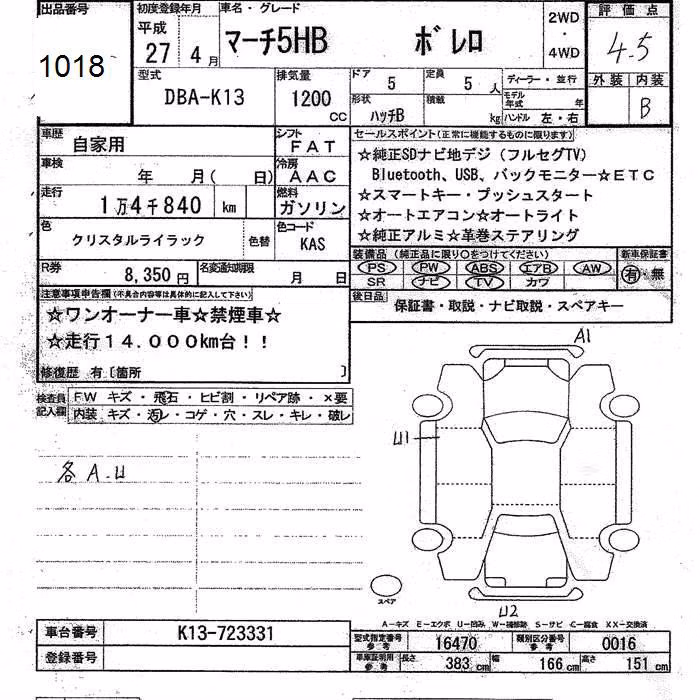 出品番号
1018
初度登録年月
平成
27 4 月
車名・グレード
マーチ5HB ボレロ
2WD
・
4WD
評価点
4.5
外装 内装
B
型式
DBA-K13
排気量
1200
CC
ドア
5
定員
5 人
ディーラー・並行
形状
ハッチB
積載
kg
モデル
年式 年
ハンドル 左・右
車歴
自家用
シフト
FAT
車検
年 月( 日)
冷房
AAC
走行
1万4千840 km
燃料
ガソリン
色
クリスタルライラック
色替
色コード
KAS
R券
8,350 円
名変通知期限
月 日
セールスポイント(正常に機能するものに限ります)
☆純正SDナビ地デジ(フルセグTV)
Bluetooth、USB、バックモニター☆ETC
☆スマートキー・プッシュスタート
☆オートエアコン☆オートライト
☆純正アルミ☆革巻ステアリング
装備品 (純正品に限り○をつけてください)
PS PW ABS エアB AW
SR ナビ TV カワ
新車保証書
有・無
後日品
保証書・取説・ナビ取説・スペアキー
注意事項申告欄(不具合内容等は具体的に記入して下さい)
☆ワンオーナー車☆禁煙車☆
☆走行14.000km台!!
修復歴 有〔箇所 〕
検査員
記入欄
FW キズ・飛石・ヒビ割・リペア跡・×要
内装 キズ・汚レ・コゲ・穴・スレ・キレ・破レ
各A.U
A1
U1
スペア
U2
A-キズ E-エクボ U-凹み W-補修跡 S-サビ C-腐食 XX-交換済
車台番号
K13-723331
登録番号
型式指定番号
参考
16470
類別区分番号
参考
0016
車庫証明用
参考
長さ
383 cm
幅
166 cm
高さ
151 cm